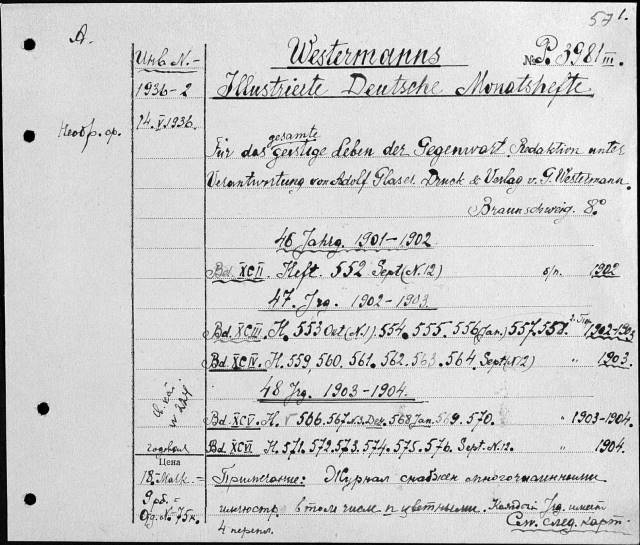 57 1.
A.
Westermanns
Инв. N.-
№ P. 3981 III.
1936-2
Illustrierte Deutsche Monatshefte
14.V.1936.
Необр. ф.
gesamte
Für das geistige Leben der Gegenwart. Redaktion unter
Verantwortung von Adolf Glaser. Druck & Verlag v. G. Westermann.
Braunschweig. 8°
46 Jahrg. 1901-1902
Bd. XCII. Heft. 552 Sept (N.12) б/п. 1902
47. Jrg. 1902-1903.
Bd. XCIII. H. 553 Oct (N.1). 554. 555. 556 (Jan.) 557. 558. 1902-1903
Bd. XCIV. H. 559. 560. 561. 562. 563. 564. Sept (N12) " 1903.
48 Jrg. 1903-1904.
Bd. XCV. H. 566. 567. N3. Dez. 568 Jan. 569. 570. " 1903-1904.
годовая Bd. XCVI H. 571. 572. 573. 574. 575. 576. Sept. N.12. " 1904.
Цена
18. Mark =
Примечание: Журнал снабжен многочисленными
9 рб. =
иллюстр. в том числе и цветными. Каждый Jrg. имеет
Отд. № 75 к.
4 перепл.
См. след. карт.